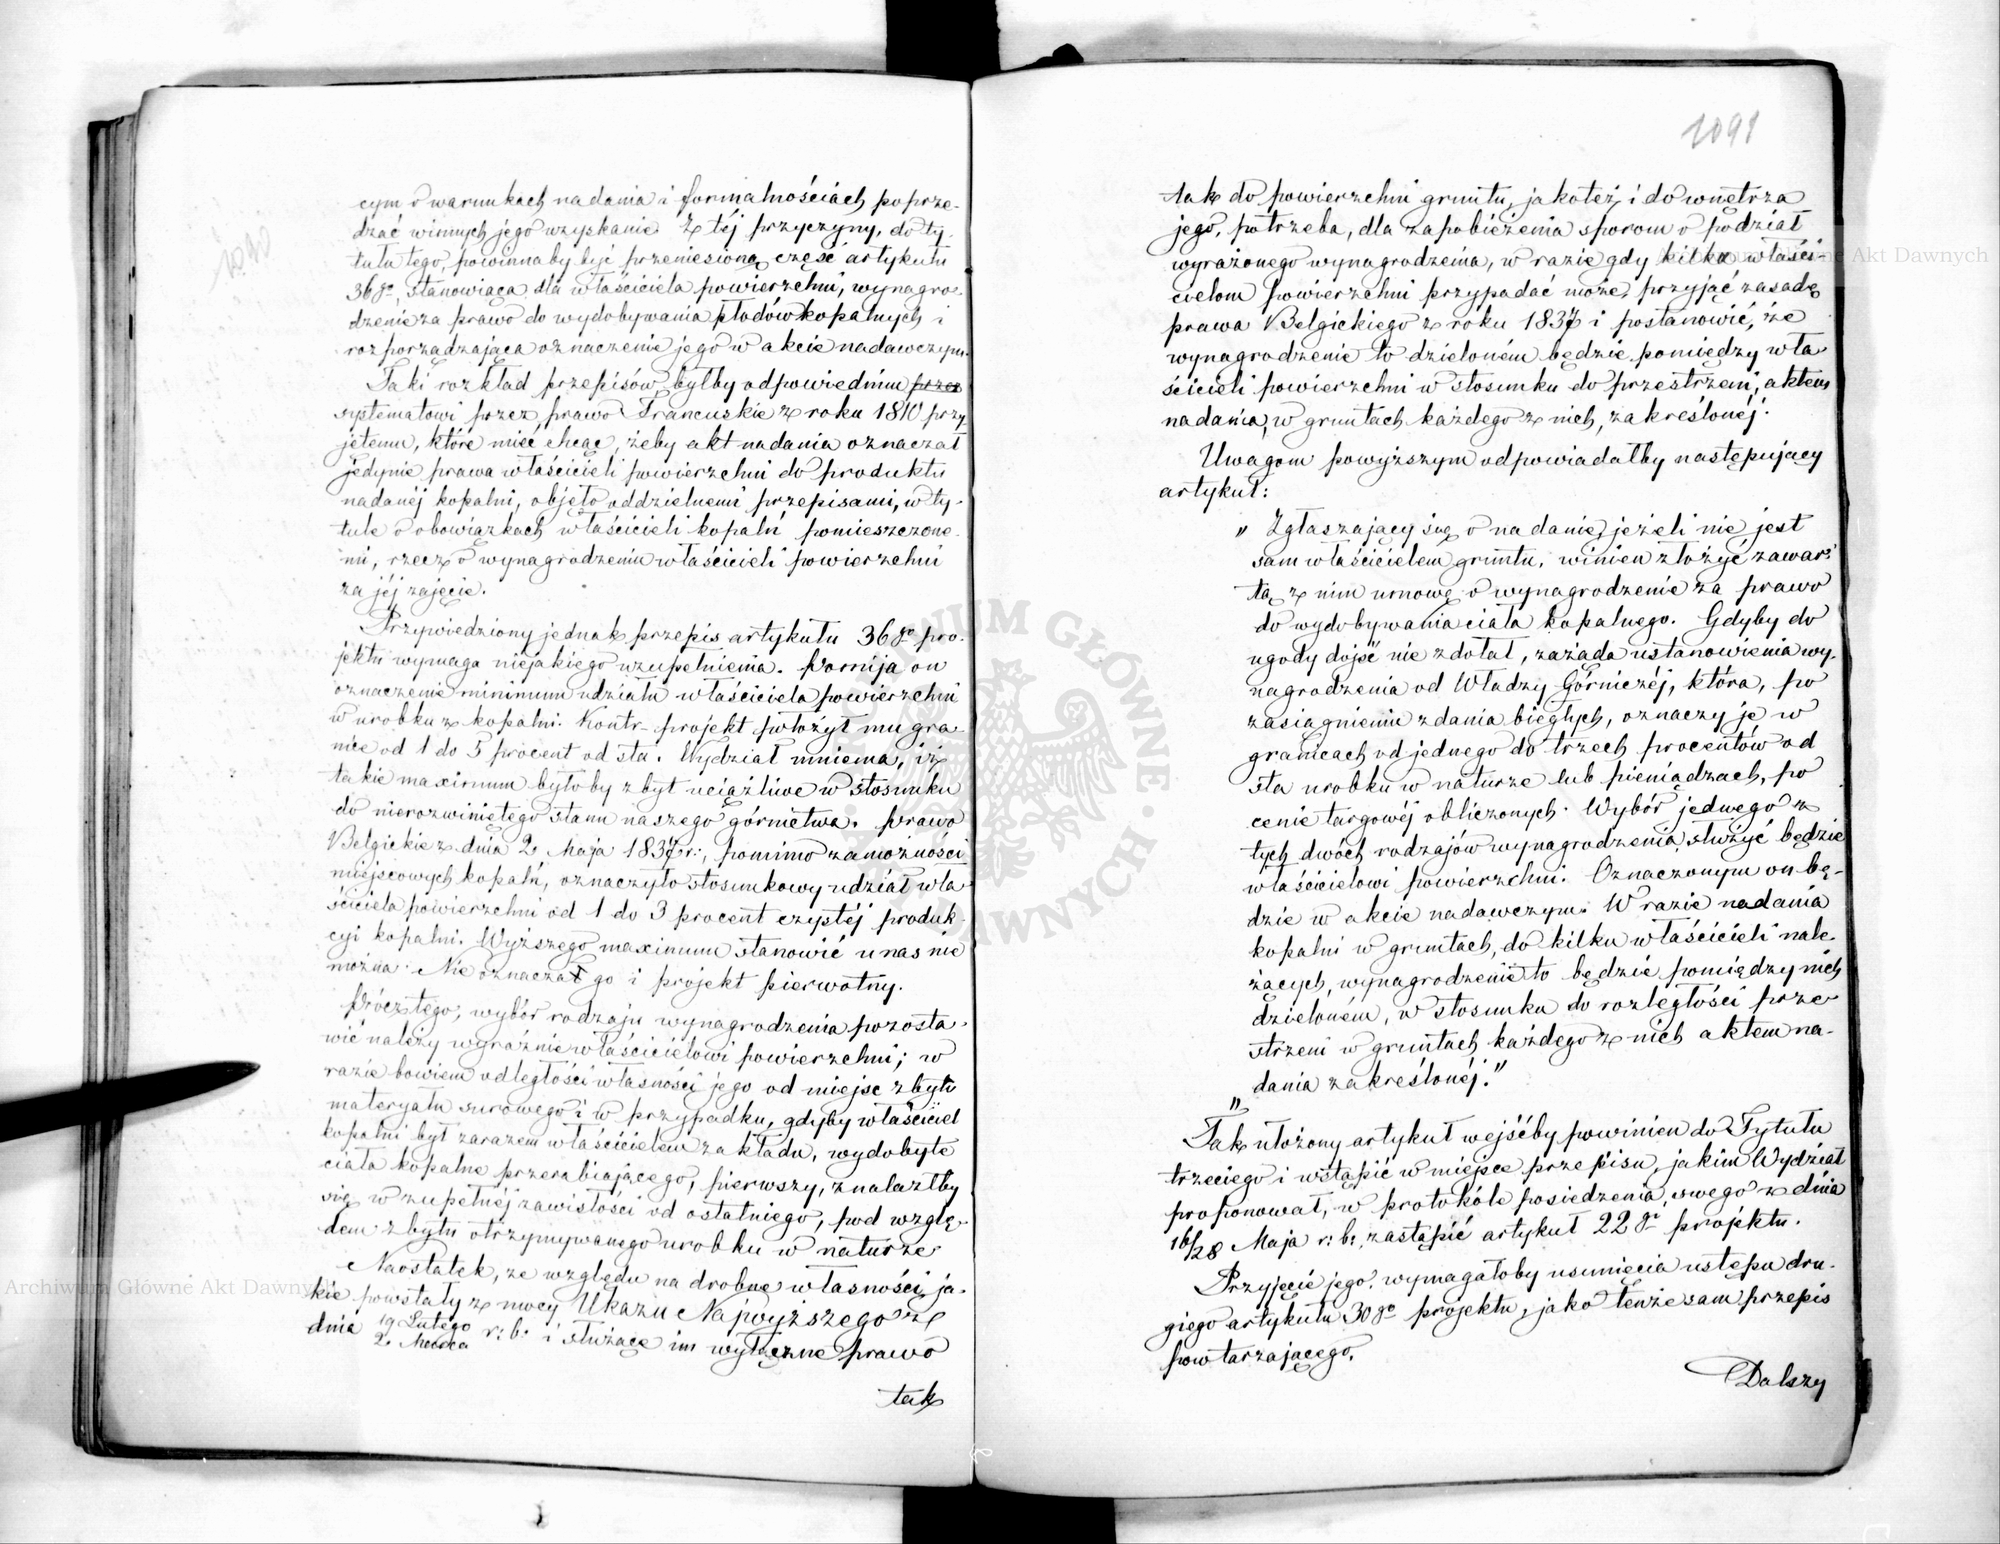 cym o warunkach nadania i formalnościach poprze-
dzać winnych jego uzyskanie. Z téj przyczyny, do ty-
tułu tego, powinnaby być przeniesioną część artykułu
36go, stanowiąca dla właściciela powierzchni, wynagro-
dzenie za prawo do wydobywania płodów kopalnych i
rozporządzająca oznaczenie jego w akcie nadawczym.
Taki rozkład przepisów byłby odpowiednim przez
systematowi przez prawo Francuskie z roku 1810 przy-
jętemu, które mieć chcąc, żeby akt nadania oznaczał
jedynie prawa właścicieli powierzchni do produktu
nadanéj kopalni, objęło oddzielnemi przepisami, w ty-
tule o obowiązkach właścicieli kopalń pomieszczone-
mi, rzecz o wynagrodzeniu właścicieli powierzchni
za jéj zajęcie.
Przywiedziony jednak przepis artykułu 36go pro-
jektu wymaga niejakiego uzupełnienia. Pomija on
oznaczenie minimum udziału właściciela powierzchni
w urobku z kopalni. Kontr-projekt położył mu gra-
nice od 1 do 5 procent od sta. Wydział mniema, iż
takie maximum byłoby zbyt uciążliwe w stosunku
do nierozwiniętego stanu naszego górnictwa. Prawo
Belgickie z dnia 2 Maja 1837 r:, pomimo zamożności
miejscowych kopalń, oznaczyło stosunkowy udział wła-
ściciela powierzchni od 1 do 3 procent czystéj produk-
cyi kopalni. Wyższego maximum stanowić u nas nie
można. Nie oznaczał go i projekt pierwotny.
Prócz tego, wybór rodzaju wynagrodzenia pozosta-
wić należy wyraźnie właścicielowi powierzchni; w
razie bowiem odległości własności jego od miejsc zbytu
materyału surowego i w przypadku, gdyby właściciel
kopalni był zarazem właścicielem zakładu, wydobyte
ciała kopalne przerabiającego, pierwszy, znalazłby
się w zupełnéj zawisłości od ostatniego, pod wzglę-
dem zbytu otrzymywanego urobku w naturze.
Naostatek, ze względu na drobne własności, ja-
kie powstały z mocy Ukazu Najwyższego z
dnia 19 Lutego
2 Marca r: b: i służące im wyłączne prawo
tak
1091
tak do powierzchni gruntu, jakoteż i do wnętrza
jego, potrzeba, dla zapobieżenia sporom o podział
wyrażonego wynagrodzenia, w razie gdy kilku właści-
cielom powierzchni przypadać może, przyjąć zasadę
prawa Belgickiego z roku 1837 i postanowić, że
wynagrodzenie to dzieloném będzie pomiędzy wła-
ścicieli powierzchni w stosunku do przestrzeni, aktem
nadania, w gruntach każdego z nich, zakreślonéj.
Uwagom powyższym odpowiadałby następujący
artykuł:
„ Zgłaszający się o nadanie, jeżeli nie jest
sam właścicielem gruntu, winien złożyć zawar-
tą z nim umowę o wynagrodzenie za prawo
do wydobywania ciała kopalnego. Gdyby do
ugody dojść nie zdołał, zażąda ustanowienia wy-
nagrodzenia od Władzy Górniczéj, która, po
zasiągnieniu zdania biegłych, oznaczy je w
granicach od jednego do trzech procentów od
sta urobku w naturze lub pieniądzach, po
cenie targowéj obliczonych. Wybór jednego z
tych dwóch rodzajów wynagrodzenia, służyć będzie
właścicielowi powierzchni. Oznaczonym on bę-
dzie w akcie nadawczym. W razie nadania
kopalni w gruntach, do kilku właścicieli nale-
żących, wynagrodzenie to będzie pomiędzy nich
dzieloném, w stosunku do rozległości prze-
strzeni w gruntach każdego z nich aktem na-
dania zakreślonéj.”
„
Tak ułożony artykuł wejśćby powinien do Tytułu
trzeciego i wstąpić w miejsce przepisu, jakim Wydział
proponował, w protokóle posiedzenia swego z dnia
16/28 Maja r: b: zastąpić artykuł 22gi projektu.
Przyjęcie jego wymagałoby usunięcia ustępu dru-
giego artykułu 30go projektu, jako tenże sam przepis
powtarzającego.
Dalszy
Archiwum Główne Akt Dawnych
ARCHIWUM GŁÓWNE AKT DAWNYCH